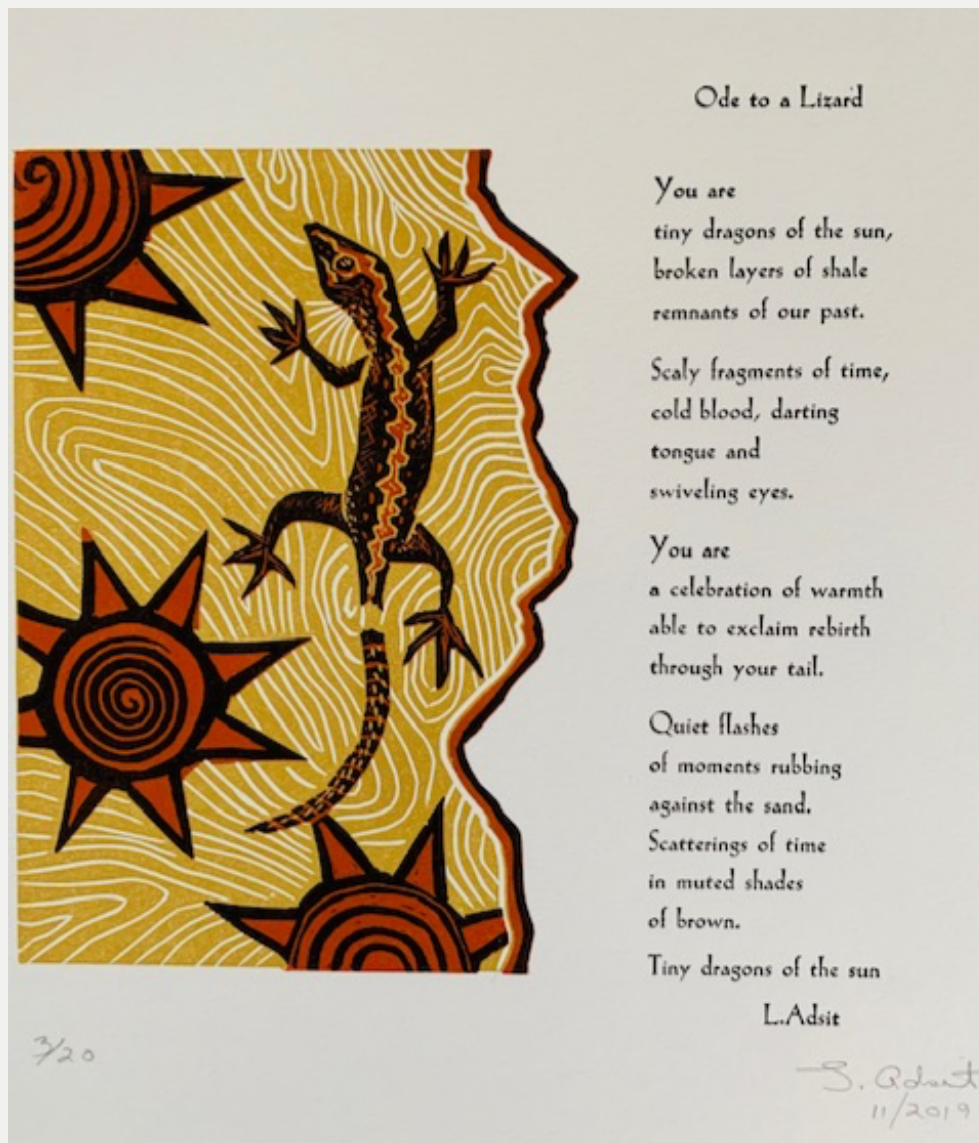 Ode to a Lizard
You are
tiny dragons of the sun,
broken layers of shale
remnants of our past.
Scaly fragments of time,
cold blood, darting
tongue and
swiveling eyes.
You are
a celebration of warmth
able to exclaim rebirth
through your tail.
Quiet flashes
of moments rubbing
against the sand.
Scatterings of time
in muted shades
of brown.
Tiny dragons of the sun
L.Adsit
3/20
S. Adsit
11/2019